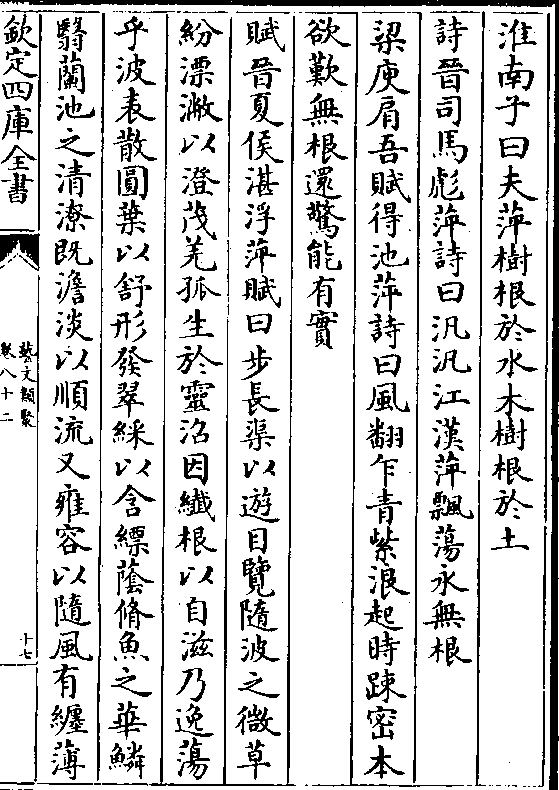 淮南子曰夫萍樹根於水木樹根於土
詩晉司馬彪萍詩曰汎汎江漢萍飄蕩永無根
梁庾肩吾賦得池萍詩曰風翻乍青紫浪起時踈密本
欲歎無根還驚能有實
賦晉夏侯湛浮萍賦曰步長渠以遊目覽隨波之微草
紛漂潎以澄茂羌孤生於靈沼因纎根以自滋乃逸蕩
乎波表散圓葉以舒形發翠綵以含縹蔭脩魚之華鱗
翳蘭池之清潦既澹淡以順流又雍容以隨風有纒薄
欽定四庫全書
藝文類聚
卷八十二
十七